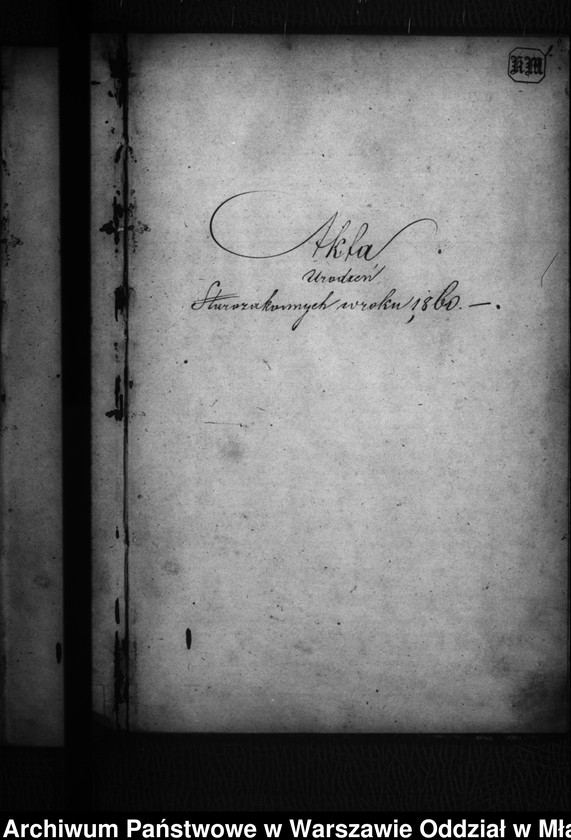 KM
Akta
Urodzeń
Starozakonnych w roku 1860. —.
Archiwum Państwowe w Warszawie Oddział w Mła